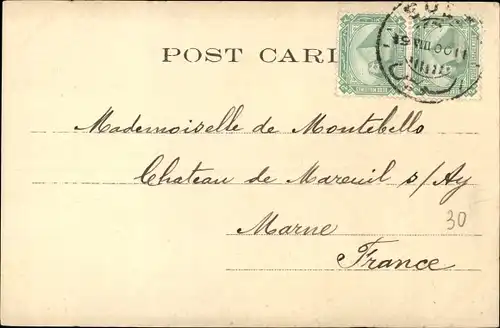 POST CARD
Mademoiselle de Montebello
Chateau de Mareuil s/Ay
Marne
30
France